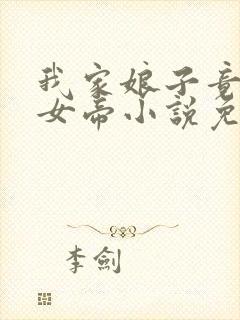 我家娘子竟
女帝小說免
李劍